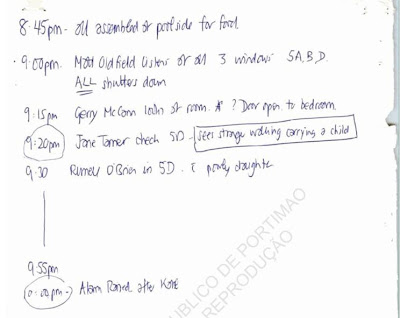 8:45pm - all assembled at poolside for food
9:00pm. Matt Oldfield listens at all 3 windows 5A,B,D.
ALL shutters down
9:15pm Gerry McCann looks at room A ? Door open to bedroom
9:20pm Jane Tanner check 5D - sees stranger walking carrying a child
9:30 Russell O'Brien in 5D. poorly daughter
9:55pm
10:00pm - Alarm Raised after Kate
PUBLICO DE PORTIMAO
REPRODUÇÃO